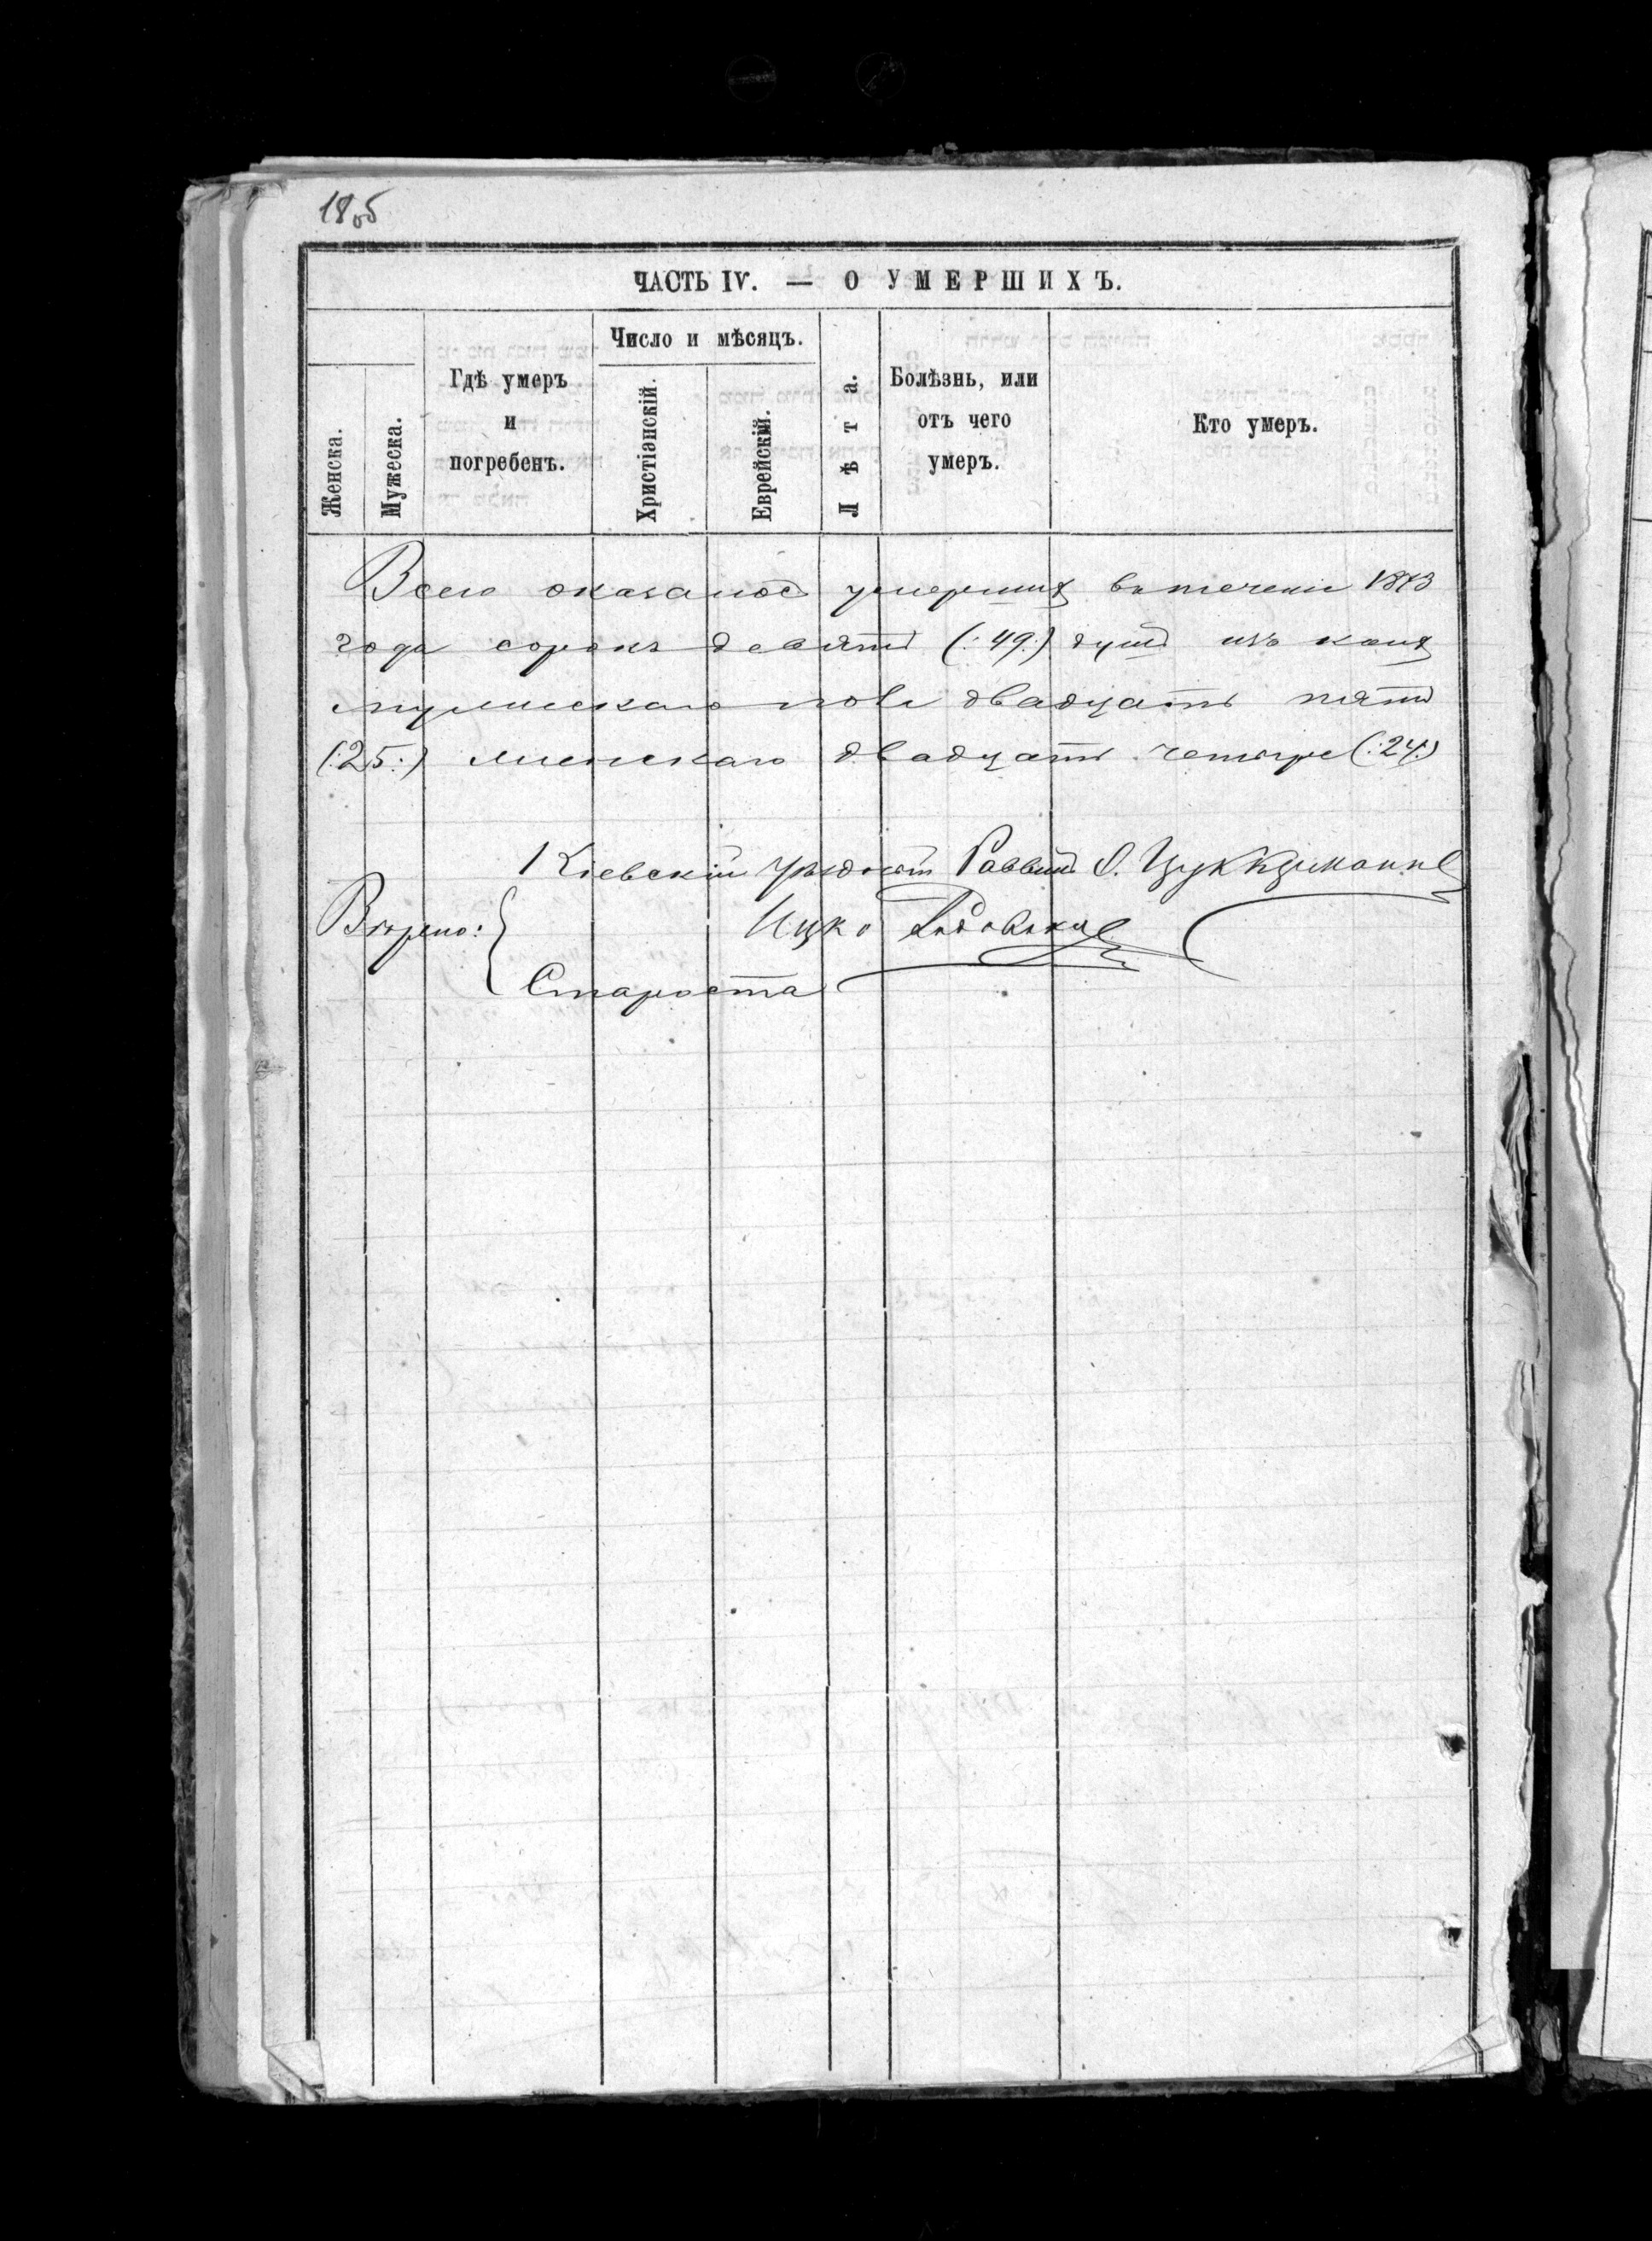 18об
ЧАСТЬ IV. — О УМЕРШИХЪ.
Женска.
Мужеска.
Гдѣ умеръ и погребенъ.
Число и мѣсяцъ.
Христіанскій.
Еврейскій.
Лѣта.
Болѣзнь, или отъ чего умеръ.
Кто умеръ.
Всего оказалось умершихъ въ теченіи 1873
года сорокъ девять (:49:) душъ изъ коихъ
мужескаго пола двадцать пять
(:25:) женскаго двадцать четыре (:24:)
Кіевскій Уѣздный Раввинъ О. Цуккерманъ
Вѣрно:
Ицко
Староста